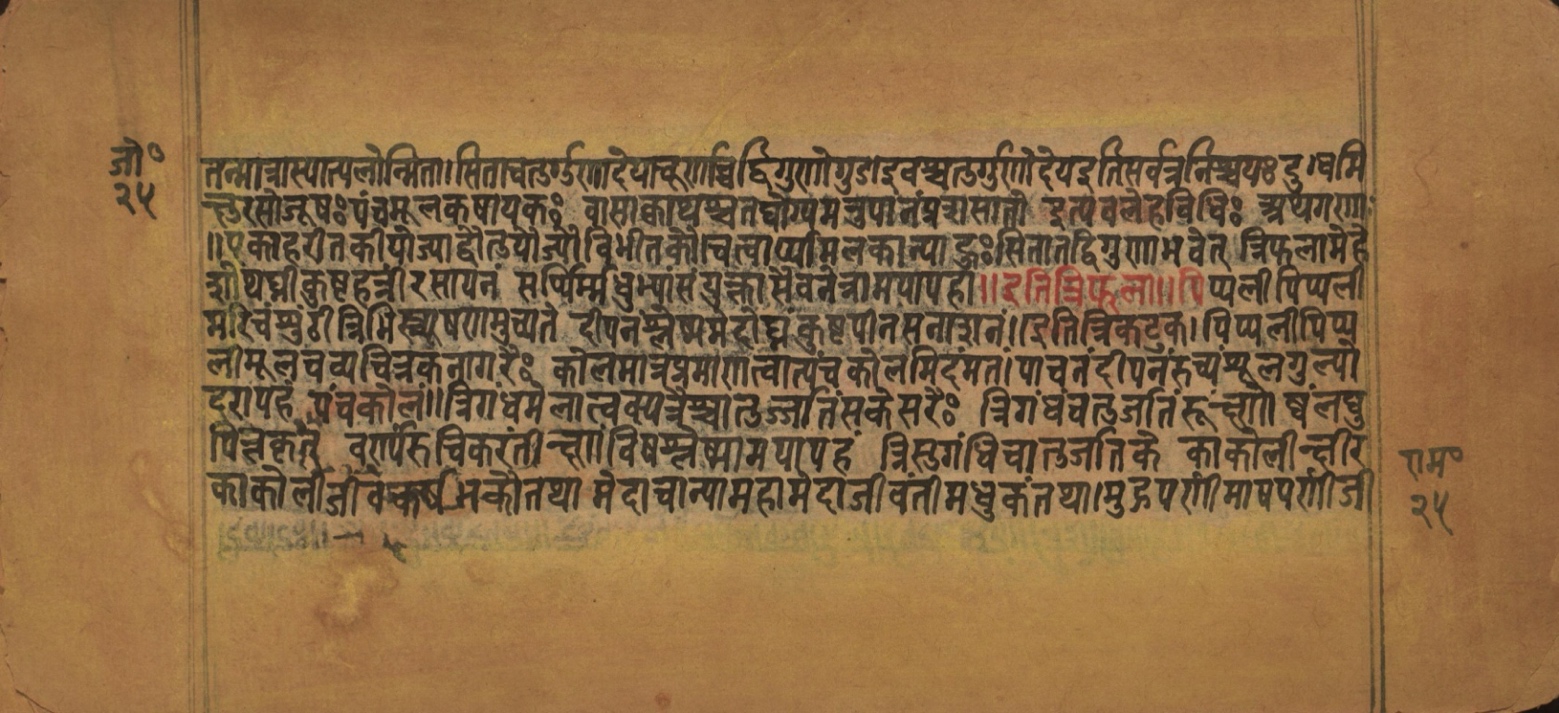 जो॰
२५
तन्मात्रास्यात्पलोन्मिता।सिताचतुर्गुणादेयाचूर्णाच्चद्विगुणोगुडाद्रवश्चतुर्गुणोदेयइतिसर्वत्रनिश्चयः दु।ग्धमि
क्षुरसोजूषःपंचमूलकषायुकः वासाक्वाथश्चतद्योग्यमनुपानंप्रशस्यातो इत्यवलेहविधिः अथगणाः
॥एकाहरीतकीयोज्याद्वौतुयोज्यौविभीतकौ।चत्वार्य्यामलकान्याहुःसितातद्विगुणाभवेत् त्रिफलामेहै
शोथघ्नीकुष्टहन्त्रीरसायनं सर्पिर्म्मधुभ्यांसंयुक्तासैवनेत्रामयापहा॥इतित्रिफला॥पिप्पलीपिप्पली
मरिचंसुंठीत्रिभिस्त्र्यूषणमुच्यते दीपनंश्लेष्ममेदोघ्नंकुष्टपीनसनाशनं।।इतित्रिकटुक।पिप्पलीपिप्प
लीमूलचव्यचित्रकनागरैः कोलमात्रप्रमाणत्वात्पंचकोलमिदंमतं।पाचनंदीपनंरुच्यंशूलगुल्मो
दरापहं पंचकोलं॥त्रिगंधमेलात्वक्पत्रैश्चातुर्जातंसकेसरैः त्रिगंधंचतुर्जातंरूक्ष्णोष्णंलघु
पित्तकृत् वर्ण्यंरुचिकरंतीक्ष्णाविषश्लेष्मामयापहं त्रिसुगंधिचातुर्जातिके काकोलीक्षीर
काकोलीजीवकर्षभकौतथा मेदाचान्यामहामेदाजीवंतीमधुकंतथा।मुद्गपर्णीमाषपर्णीजी
राम॰
२५